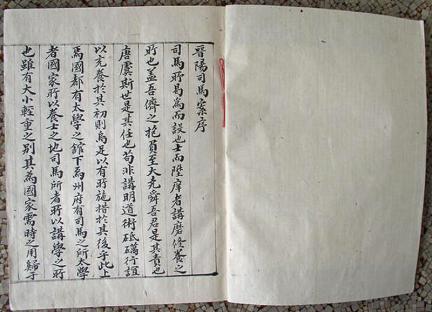 晉陽司馬案序
司馬所昜為而設也士而陞庠者講磨修養之
所也盖吾儕之抱負至大堯舜吾君是其責也
唐虞斯世是其任也苟非講明道術砥礪行誼
以充養於其初則烏是以有所施措於其後乎此上
焉國都有太學之舘下焉州府有司馬之所太學
者國家所以養士之地司馬所者所以講學之所
也雖有大小輕重之别其為國家需時之用歸于